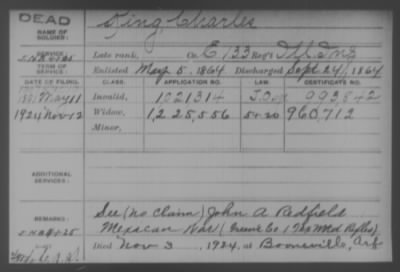 DEAD
King, Charles
NAME OF SOLDIER:
SERVICE:
Late rank, Co. E, 133 Reg't Ill. Inf.
TERM OF SERVICE:
Enlisted May 5, 1864 Discharged Sept. 24, 1864
DATE OF FILING. CLASS. APPLICATION NO. LAW. CERTIFICATE NO.
1891 May 11 Invalid, 1021314 993,842
1924 Nov 12 Widow, 1,225,556 5-1-20 960,712
Minor,
ADDITIONAL SERVICES:
REMARKS: See (no claim) John A Redfield
Mexican War (Co 1 Tex Mtd Rifles)
Died Nov 3, 1924, at Booneville, Ark